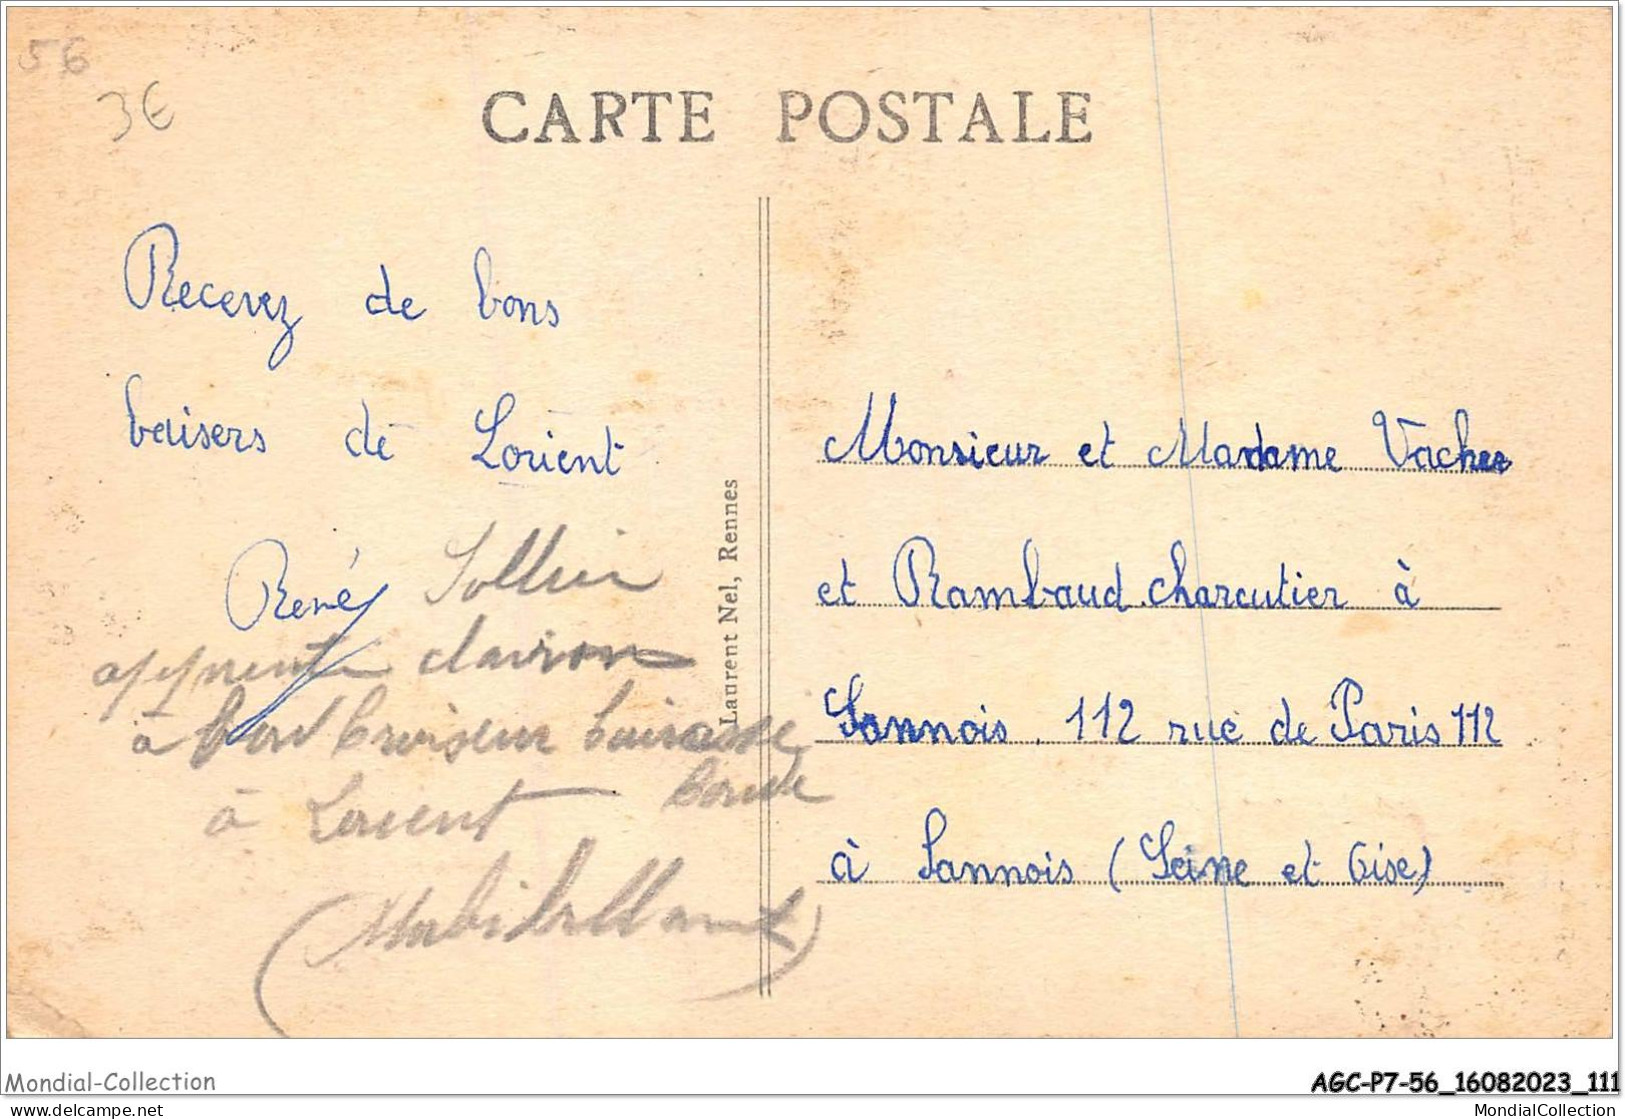 56
3€
CARTE POSTALE
Recevez de bons
baisers de Lorient
René Sollier
apprenti clairon
à bord Croiseur Cuirassé
Condé
à Lorient
(Morbihan
Laurent Nel, Rennes
Monsieur et Madame Vacher
et Rambaud charcutier à
Sannois. 112 rue de Paris 112
à Sannois (Seine et Oise)
Mondial-Collection
AGC-P7-56_16082023_111
www.delcampe.net
MondialCollection